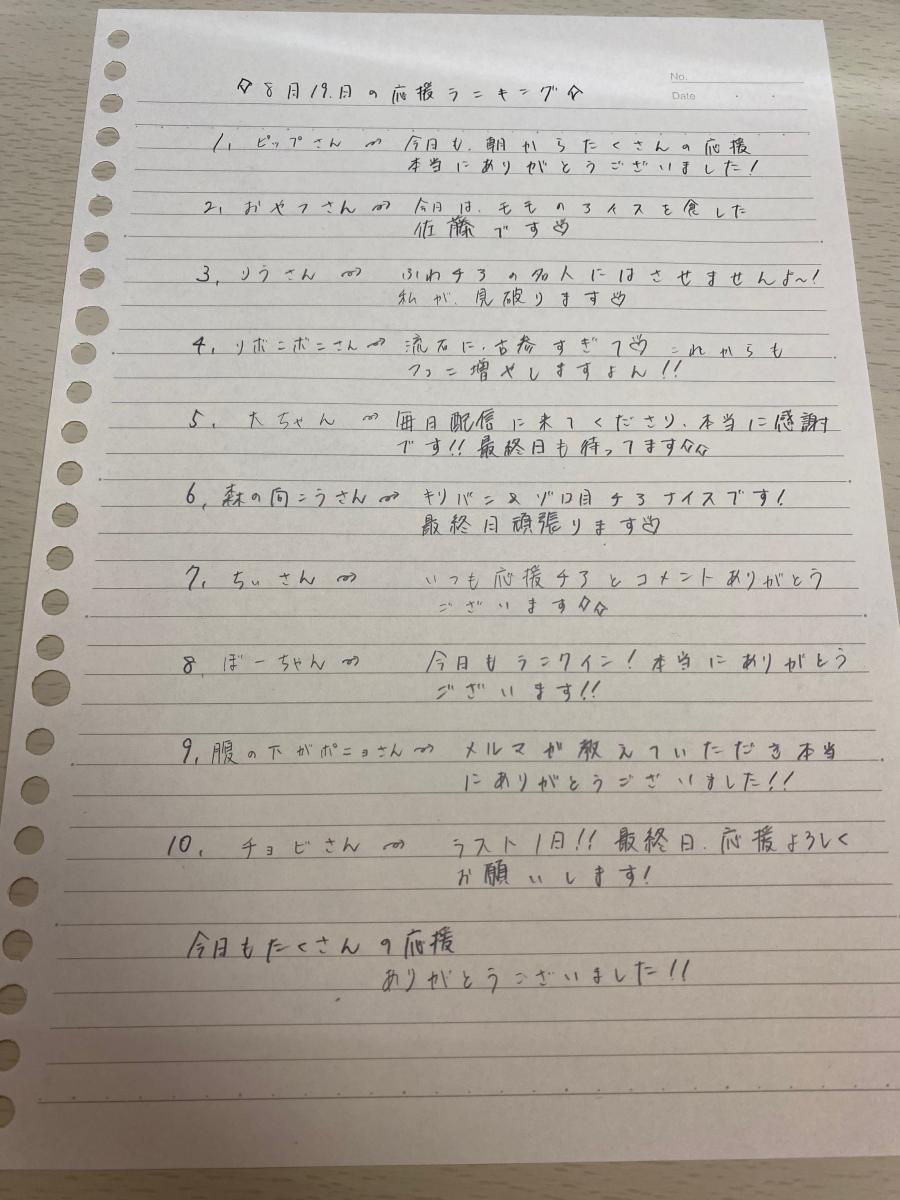 No.
Date
☆8月19.日の応援ランキング☆
1, ピップさん ⇝ 今日も、朝からたくさんの応援
本当にありがとうございました!
2, おやつさん ⇝ 今日は、モモのアイスを食した
佐藤です♡
3, りうさん ⇝ ふわチアの名人にはさせませんよ〜!
私が、見破ります♡
4, リボンボンさん ⇝ 流石に、古参すぎて♡ これからも
増やしますよん!!
5, 大ちゃん ⇝ 毎日配信に来てくださり、本当に感謝
です!! 最終日も待ってます☆☆
6, 森の向こうさん ⇝ キリバン&ゾロ目チアナイスです!
最終日頑張ります♡
7, ちぃさん ⇝ いつも応援チアとコメントありがとう
ございます☆☆
8, ぼーちゃん ⇝ 今日もランクイン! 本当にありがとう
ございます!!
9, 腹の下がポニョさん ⇝ メルマガ教えていただき本当
にありがとうございました!!
10, チョビさん ⇝ ラスト1日!! 最終日、応援よろしく
お願いします!
今日もたくさんの応援
ありがとうございました!!